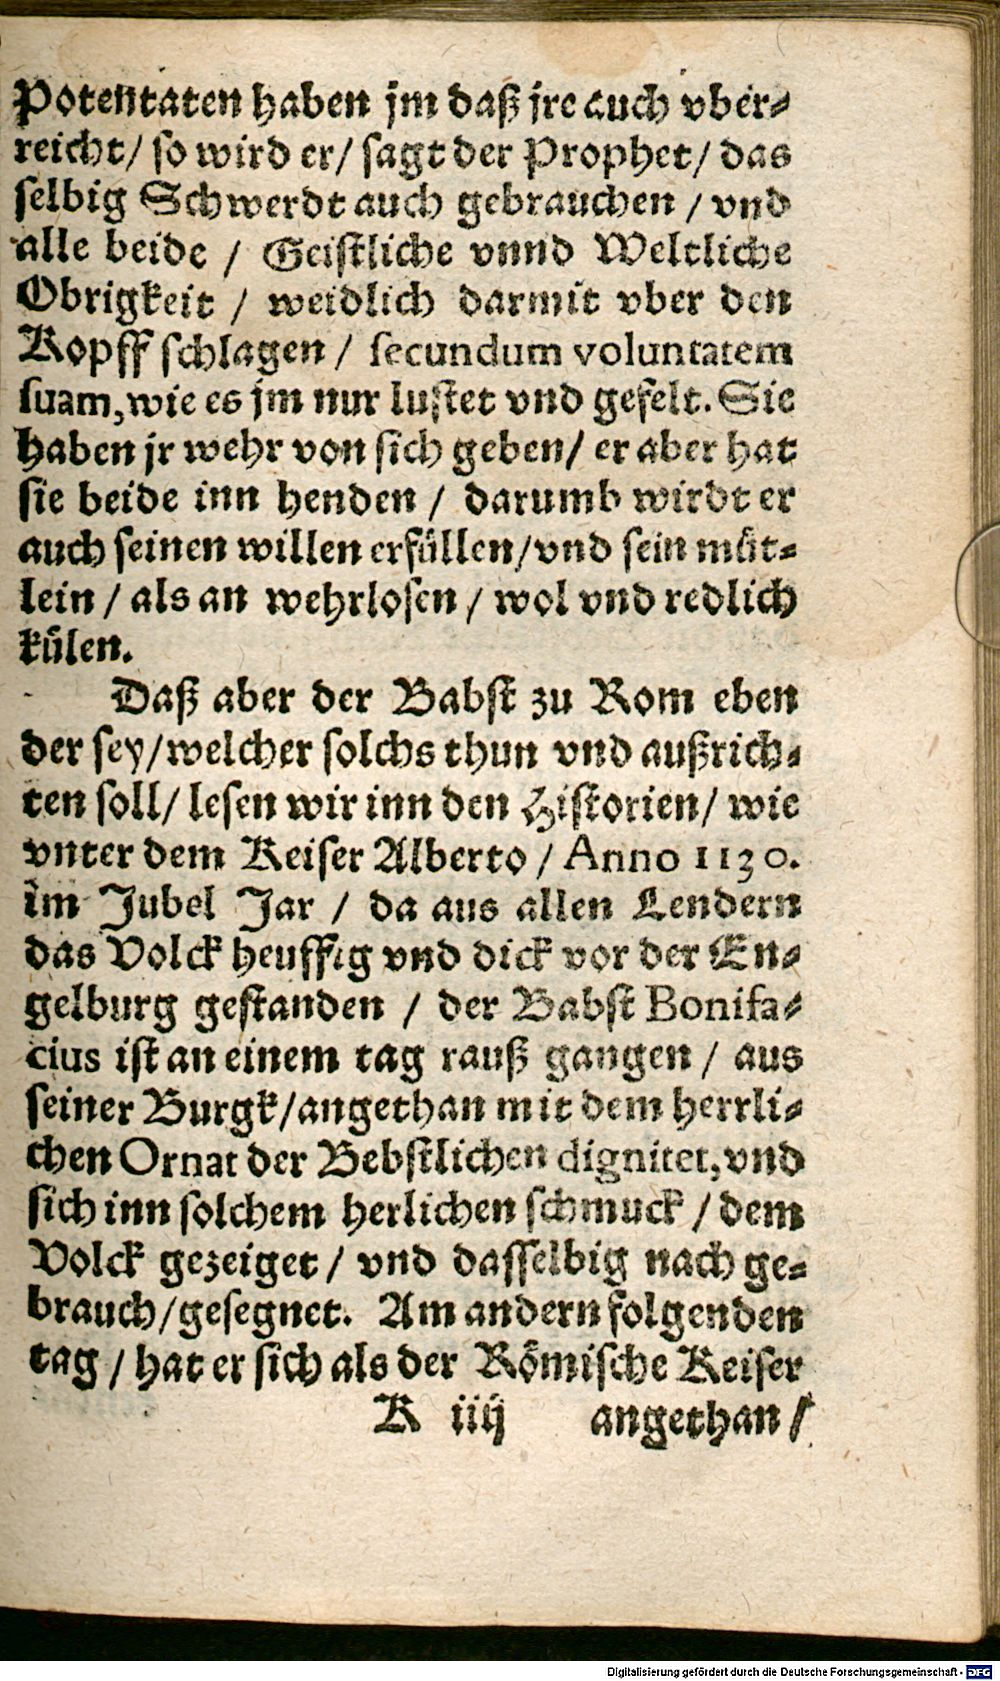 Potentaten haben jm daß jre auch vber⸗
reicht/ so wird er/ sagt der Prophet/ das
selbig Schwerdt auch gebrauchen / vnd
alle beide / Geistliche vnnd Weltliche
Obrigkeit / weidlich darmit vber den
Kopff schlagen / secundum voluntatem
suam, wie es jm nur lustet vnd gefelt. Sie
haben jr wehr von sich geben/ er aber hat
sie beide inn henden / darumb wirdt er
auch seinen willen erfüllen/ vnd sein müt⸗
lein / als an wehrlosen / wol vnd redlich
külen.
Daß aber der Babst zu Rom eben
der sey/ welcher solchs thun vnd außrich⸗
ten soll/ lesen wir inn den Historien/ wie
vnter dem Keiser Alberto / Anno 1130.
im Jubel Jar / da aus allen Lendern
das Volck heuffig vnd dick vor der En⸗
gelburg gestanden / der Babst Bonifa⸗
cius ist an einem tag rauß gangen / aus
seiner Burgk/ angethan mit dem herrli⸗
chen Ornat der Bebstlichen dignitet, vnd
sich inn solchem herlichen schmuck / dem
Volck gezeiget / vnd dasselbig nach ge⸗
brauch/ gesegnet. Am andern folgenden
tag / hat er sich als der Römische Keiser
K iiij angethan /
Digitalisierung gefördert durch die Deutsche Forschungsgemeinschaft - DFG